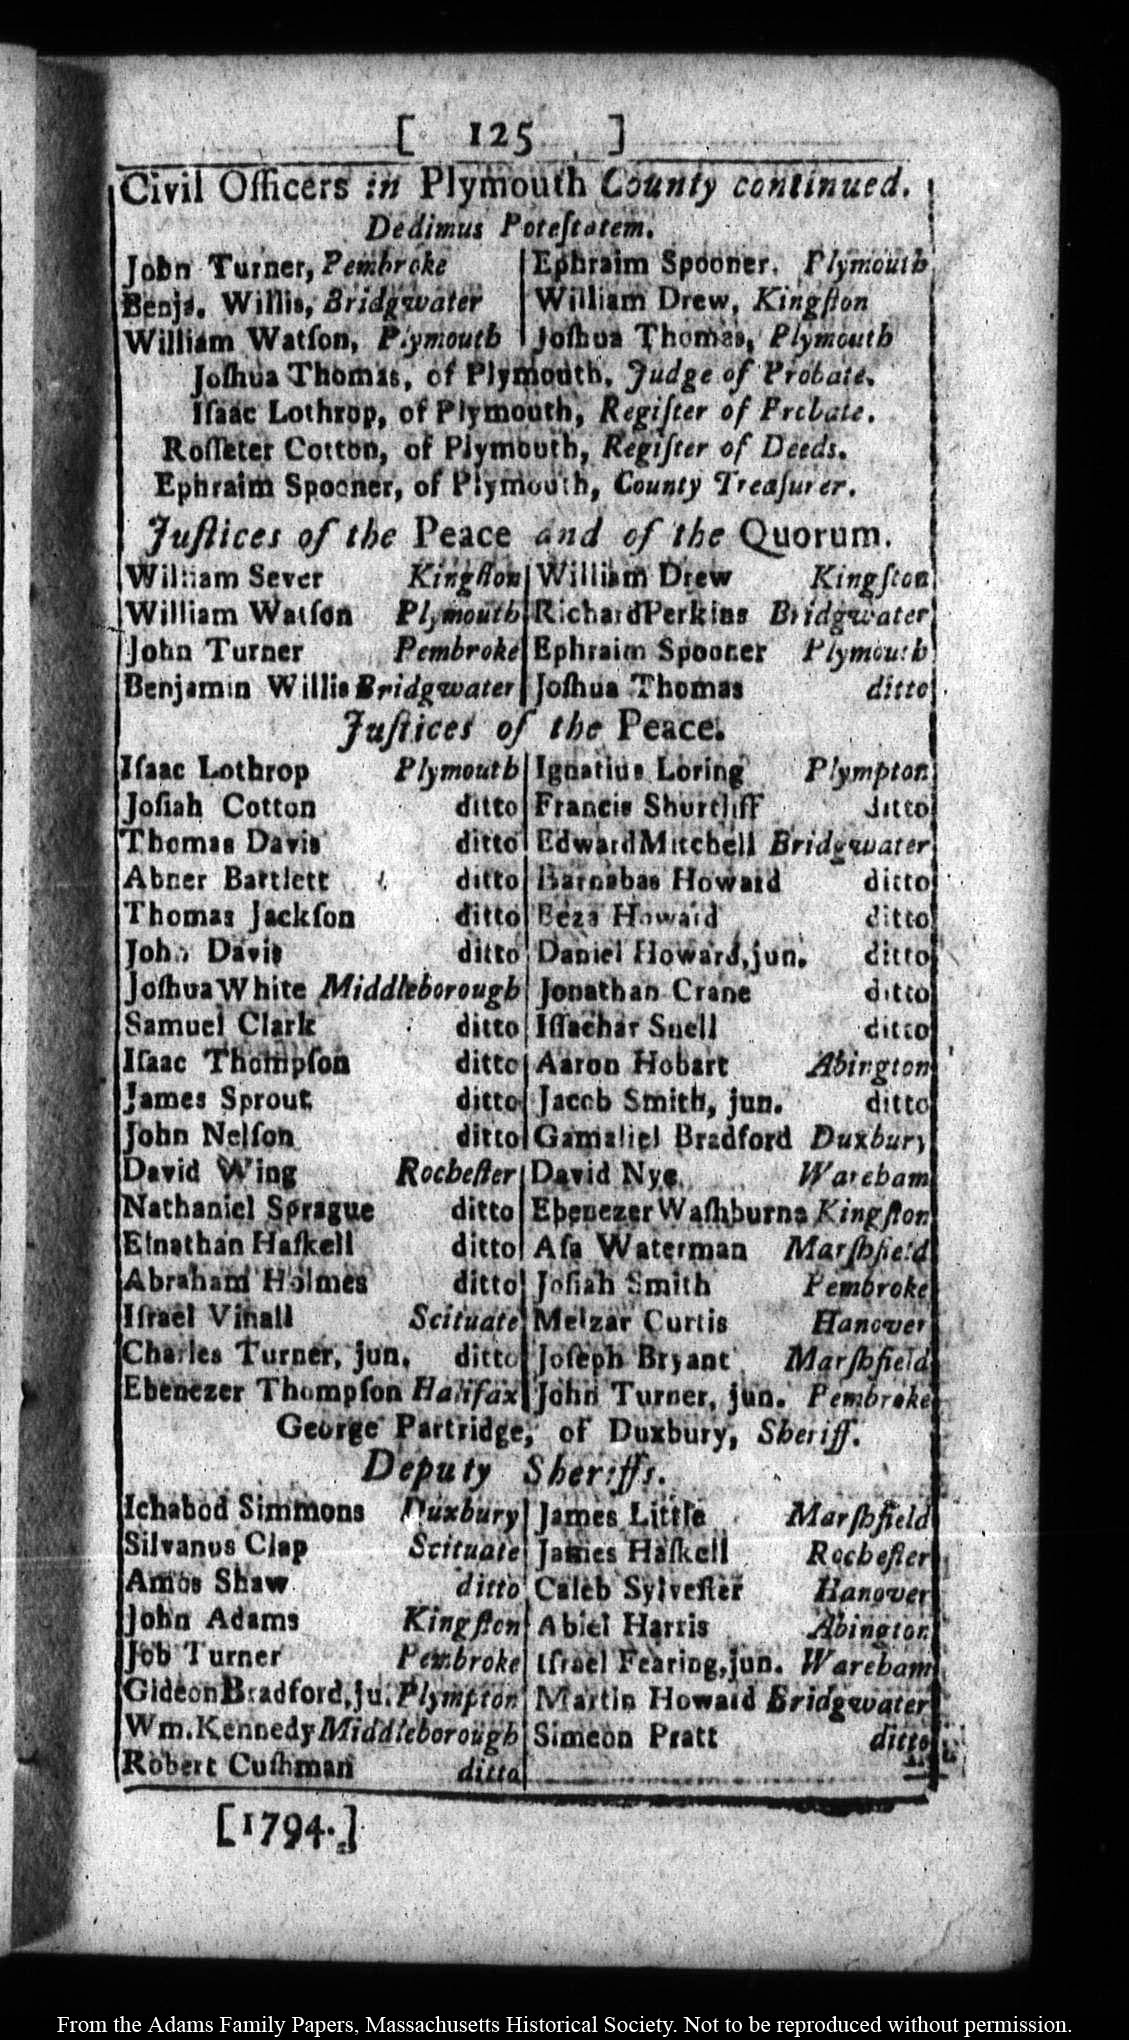 [ 125 ]
Civil Officers in Plymouth County continued.
Dedimus Poteſtatem.
John Turner, Pembroke | Ephraim Spooner, Plymouth
Benja. Willis, Bridgwater | William Drew, Kingſton
William Watſon, Plymouth | Joſhua Thomas, Plymouth
Joſhua Thomas, of Plymouth, Judge of Probate.
Iſaac Lothrop, of Plymouth, Regiſter of Probate.
Roſſeter Cotton, of Plymouth, Regiſter of Deeds.
Ephraim Spooner, of Plymouth, County Treaſurer.
Juſtices of the Peace and of the Quorum.
William Sever Kingſton | William Drew Kingſton
William Watſon Plymouth | Richard Perkins Bridgwater
John Turner Pembroke | Ephraim Spooner Plymouth
Benjamin Willis Bridgwater | Joſhua Thomas ditto
Juſtices of the Peace.
Iſaac Lothrop Plymouth | Ignatius Loring Plympton
Joſiah Cotton ditto | Francis Shurtliff ditto
Thomas Davis ditto | Edward Mitchell Bridgwater
Abner Bartlett ditto | Barnabas Howard ditto
Thomas Jackſon ditto | Beza Howard ditto
John Davis ditto | Daniel Howard, jun. ditto
Joſhua White Middleborough | Jonathan Crane ditto
Samuel Clark ditto | Iſſachar Snell ditto
Iſaac Thompſon ditto | Aaron Hobart Abington
James Sprout ditto | Jacob Smith, jun. ditto
John Nelſon ditto | Gamaliel Bradford Duxbury
David Wing Rocheſter | David Nye Wareham
Nathaniel Sprague ditto | Ebenezer Waſhburne Kingſton
Elnathan Haſkell ditto | Aſa Waterman Marſhfield
Abraham Holmes ditto | Joſiah Smith Pembroke
Iſrael Vinall Scituate | Melzar Curtis Hanover
Charles Turner, jun. ditto | Joſeph Bryant Marſhfield
Ebenezer Thompſon Halifax | John Turner, jun. Pembroke
George Partridge, of Duxbury, Sheriff.
Deputy Sheriffs.
Ichabod Simmons Duxbury | James Little Marſhfield
Silvanus Clap Scituate | James Haſkell Rocheſter
Amos Shaw ditto | Caleb Sylveſter Hanover
John Adams Kingſton | Abiel Harris Abington
Job Turner Pembroke | Iſrael Fearing, jun. Wareham
Gideon Bradford, ju. Plympton | Martin Howard Bridgwater
Wm. Kennedy Middleborough | Simeon Pratt ditto
Robert Cuſhman ditto
[1794.]
From the Adams Family Papers, Massachusetts Historical Society. Not to be reproduced without permission.